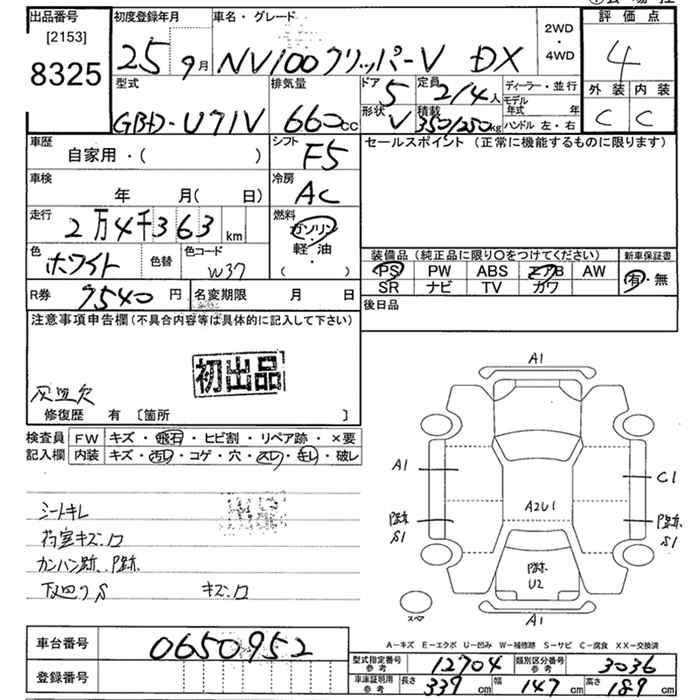 出品番号 初度登録年月 車名・グレード 2WD・4WD 評価点
[2153]
8325 25年9月 NV100クリッパーV DX 4
型式 排気量 ドア 定員 ディーラー・並行 外装 内装
GBD-U71V 660cc 5 2/4人 モデル年式 年 C C
形状 V 積載 350/250kg ハンドル 左・右
車歴 自家用・( ) シフト F5 セールスポイント (正常に機能するものに限ります)
車検 年 月( 日) 冷房 AC
走行 2万4千363km 燃料 ガソリン・軽油・( )
色 ホワイト 色替 色コード W37 装備品 (純正品に限り○をつけてください) 新車保証書
PS PW ABS エアB AW 有・無
SR ナビ TV カワ
R券 7540円 名変期限 月 日 後日品
注意事項申告欄(不具合内容等は具体的に記入して下さい)
初出品
灰皿欠
修復歴 有 〔箇所 〕
検査員 FW キズ・飛石・ヒビ割・リペア跡・×要
記入欄 内装 キズ・汚レ・コゲ・穴・スレ・キレ・破レ
シートキレ
荷室キズ.凹
カンバン跡. P跡.
下廻りS キズ.凹
A1
A1 C1
A2U1
P跡. S1 P跡. S1
P跡. U2
スペア A1
A-キズ E-エクボ U-凹み W-補修跡 S-サビ C-腐食 XX-交換済
車台番号 0650952
型式指定番号 参考 12704 類別区分番号 参考 3036
登録番号
車庫証明用 参考 長さ 339cm 幅 147cm 高さ 189cm